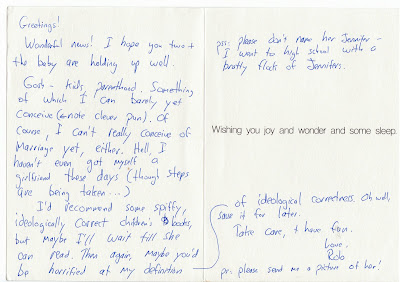 Greetings!
Wonderful news! I hope you two +
the baby are holding up well.
Gosh - kids, parenthood. Something
of which I can barely yet
conceive (← note clever pun). Of
course, I can't really conceive of
Marriage yet, either. Hell, I
haven't even got myself a
girlfriend these days (though steps
are being taken...)
I'd recommend some spiffy,
ideologically correct children's books,
but maybe I'll wait till she
can read. Then again, maybe you'd
be horrified at my definition
pss: please don't name her Jennifer -
I went to high school with a
bratty flock of Jennifers.
Wishing you joy and wonder and some sleep.
of ideological correctness. Oh well,
save it for later.
Take care, + have fun.
Love,
Rob
ps: please send me a picture of her!